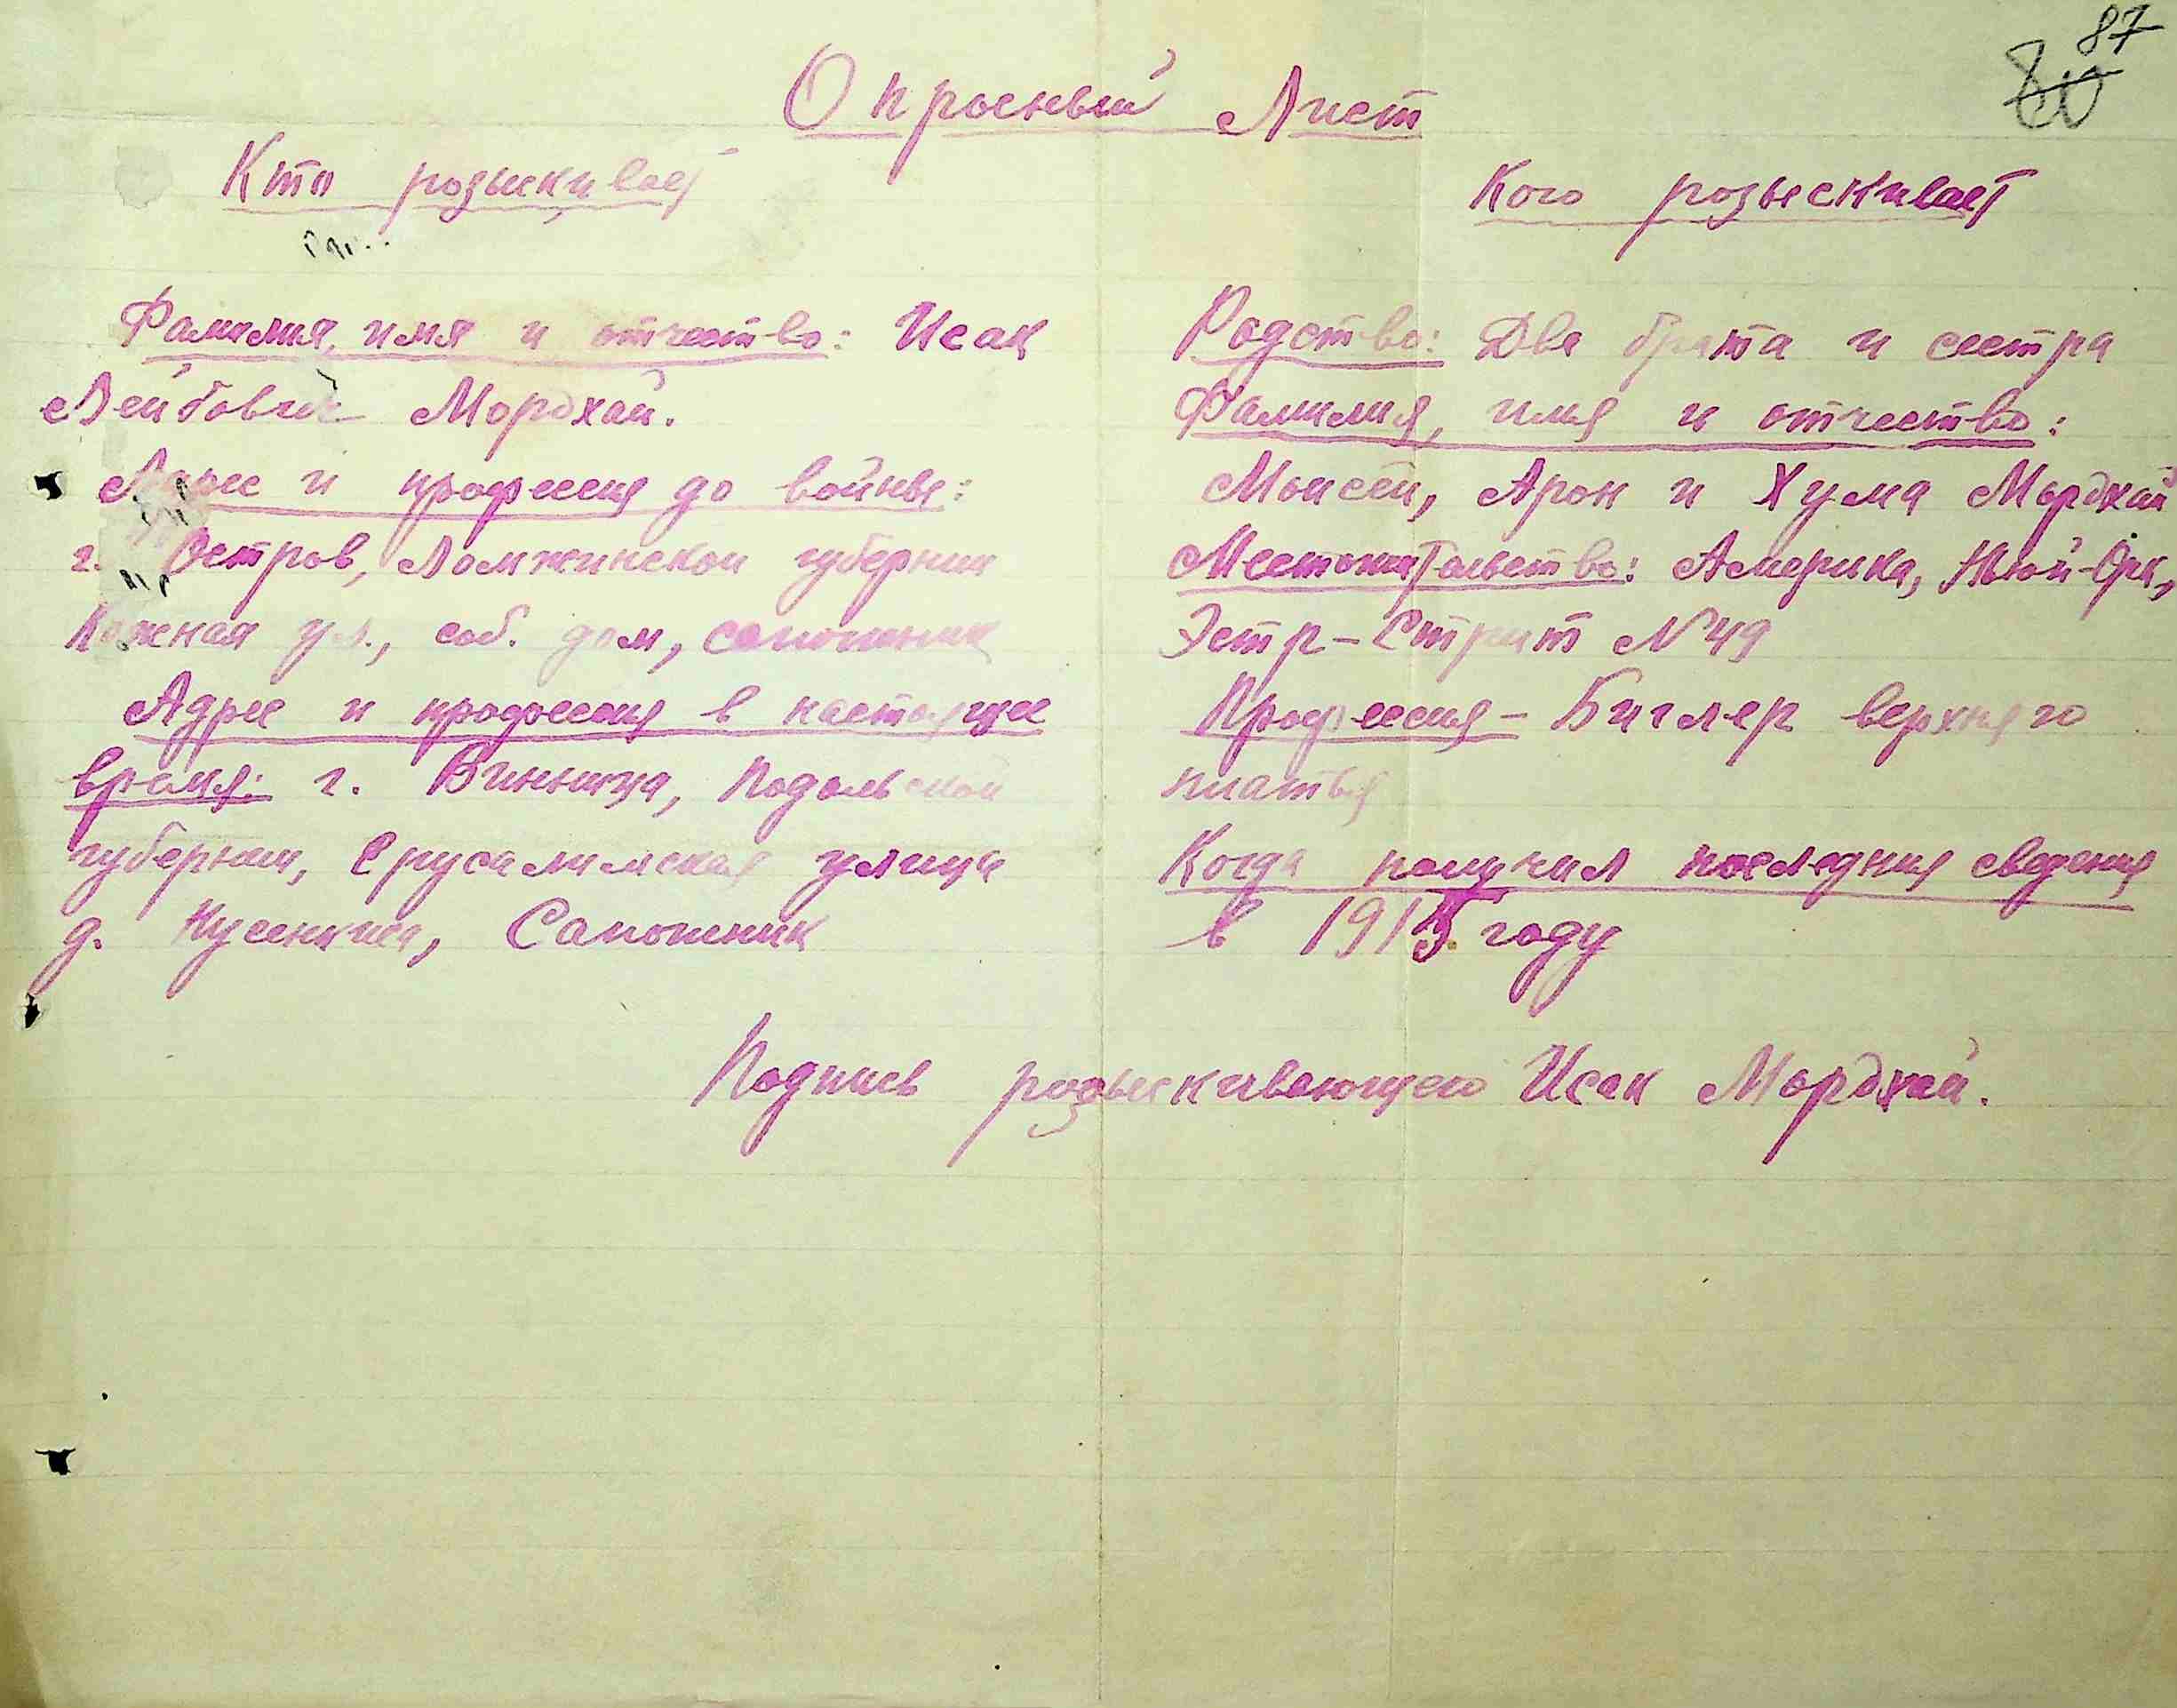 87
80
Опросный Лист
Кто розыскивает
Фамилия, имя и отчество: Исак
Лейбович Мордхай.
Адрес и професия до войны:
г. Остров, Ломжинской губернии
Кожная ул., соб. дом, сапошник
Адрес и професия в настоящее
время: г. Винница, Подольской
губернии, Ерусалимская улица
д. Нусенкиса, Сапошник
Кого розыскивает
Родство: Два брата и сестра
Фамилия, имя и отчество:
Моисей, Арон и Хума Мордхай
Местожительство: Америка, Нью-Орк,
Эстр-Стрит №49
Професия - Биглер верхняго
платья
Когда получил последния сведения
в 1915 году
Подпись розыскивающего Исак Мордхай.